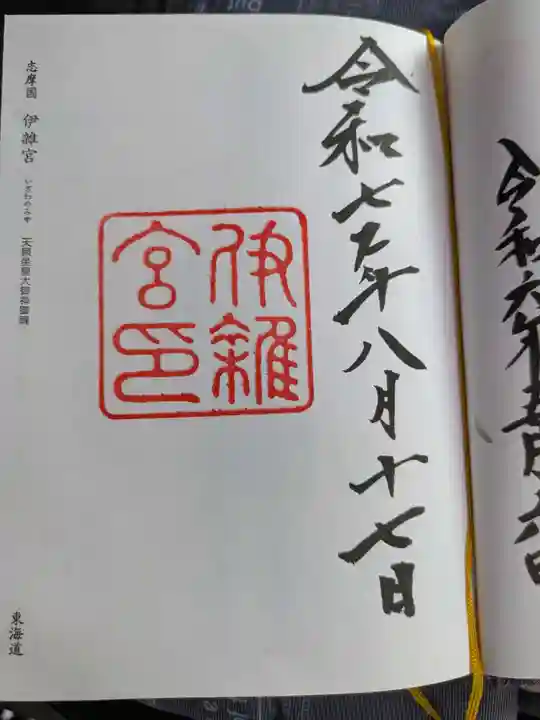 令和六年五月六日
令和七年八月十七日
伊雜
宮印
志摩國 伊雜宮 いざわのみや 天照坐皇大御神御魂
東海道